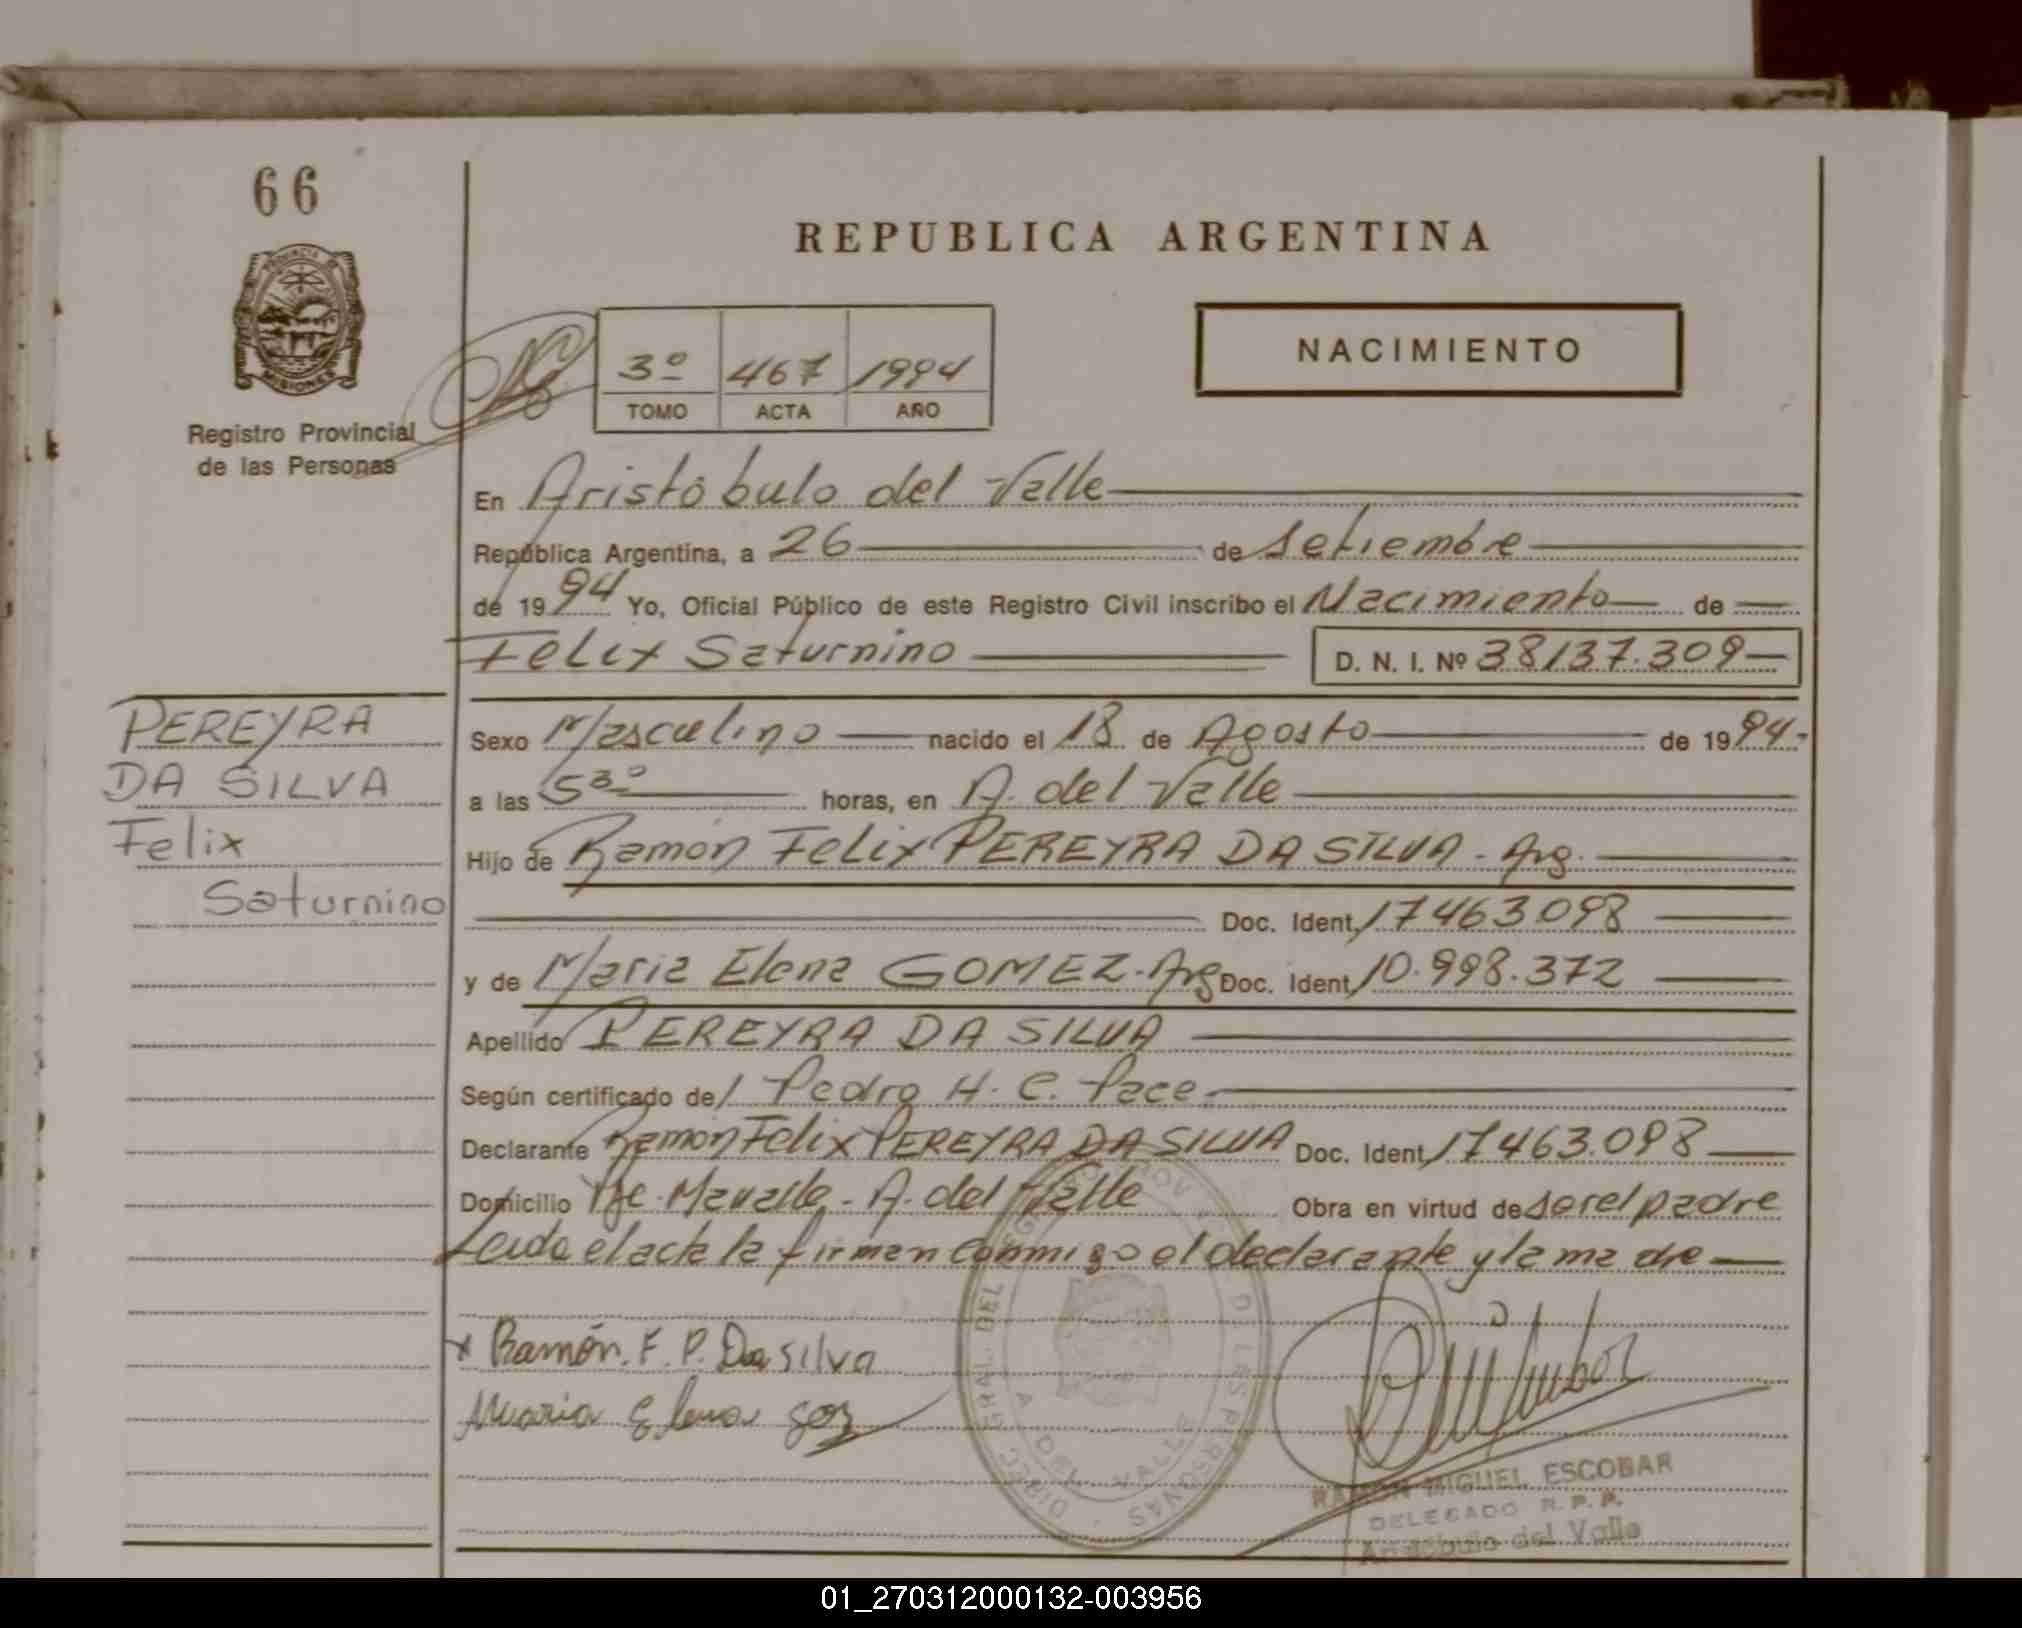 66
REPUBLICA ARGENTINA
PROVINCIA DE
MISIONES
Registro Provincial
de las Personas
3º 467 1994
TOMO ACTA AÑO
NACIMIENTO
En Aristóbulo del Valle
República Argentina, a 26 de Setiembre
de 1994 Yo, Oficial Público de este Registro Civil inscribo el Nacimiento de
Felix Saturnino D. N. I. Nº 38137.309
PEREYRA
DA SILVA
Felix
Saturnino
Sexo Masculino nacido el 18 de Agosto de 1994.
a las 5 30 horas, en A. del Valle
Hijo de Ramón Felix PEREYRA DA SILVA - Arg.
Doc. Ident. 17463098
y de Maria Elena GOMEZ - Arg Doc. Ident. 10.998.372
Apellido PEREYRA DA SILVA
Según certificado de Pedro H. C. Pace
Declarante Ramón Felix PEREYRA DA SILVA Doc. Ident. 17463.098
Domicilio A. del Valle Obra en virtud de ser el padre
Leida el acta la firman conmigo el declarante y la madre
Ramón. F. P. Da silva
Maria Elena
RAMON MIGUEL ESCOBAR
DELEGADO R. P. P.
Aristóbulo del Valle
01_270312000132-003956